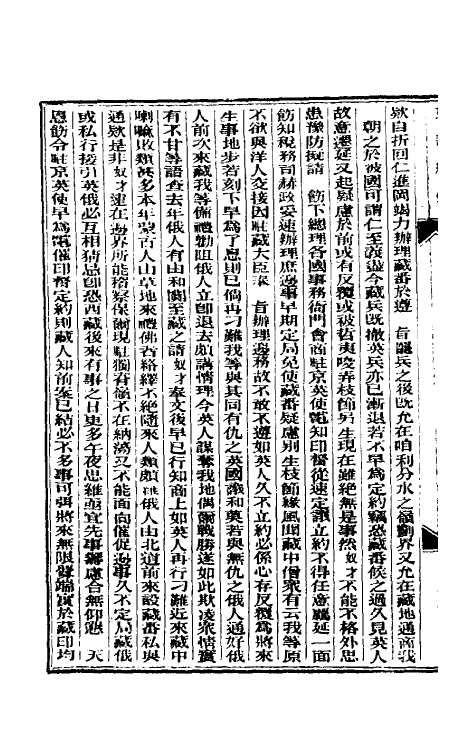 欵自折回仁進岡竭力辦理藏番於遵 旨罷兵之後既允在咱利分水之嶺劃界又允在藏地通商我
朝之於彼國可謂仁至義盡今藏兵既撤英兵亦已漸退若不早爲定約竊恐藏番候之過久見英人
故意遷延又起疑慮於前或有反覆或被旨夷唆弄枝節另生現在雖絶無是事然奴才不能不格外思
患豫防擬請 飭下總理各國事務衙門會商駐京英使電知印督從速定議立約不得任意羈延一面
飭知稅務司赫政妥速辦理庶邊事早期定局免使藏番疑慮別生枝節緣風聞藏中僧衆有云我等原
不欲與洋人交接因駐藏大臣奉 旨辦理邊務故不敢不遵如英人久不立約必係心存反覆爲將來
生事地步若刻下早爲了息則已倘再刁難我等與其同有仇之英國議和莫若與無仇之俄人通好俄
人前次來藏我等備禮勸阻俄人立卽退去頗講情理今英人謀奪我地偶爾戰勝遂如此欺凌衆情實
有不甘等語查去年俄人有由和闐至藏之請奴才奉文後早已行知商上如英人再行刁難近來藏中
喇嘛敗類甚多本年蒙古人山草地來禮佛者絡繹不絶隨來人類頗 俄人由北道前來設藏番私與
通欵是非奴才遠在邊界所能稽察保 現駐獨脊嶺不在納蕩又不能面向催促邊事久不定局藏俄
或私行接引英俄必互相猜忌卽恐西藏後來有事之日更多午夜思維亟宜先事籌慮合無仰懇 天
恩飭令駐京英使早爲電催印督定約則藏人知前案已結必不多事可弭將來無限釁端實於藏印均